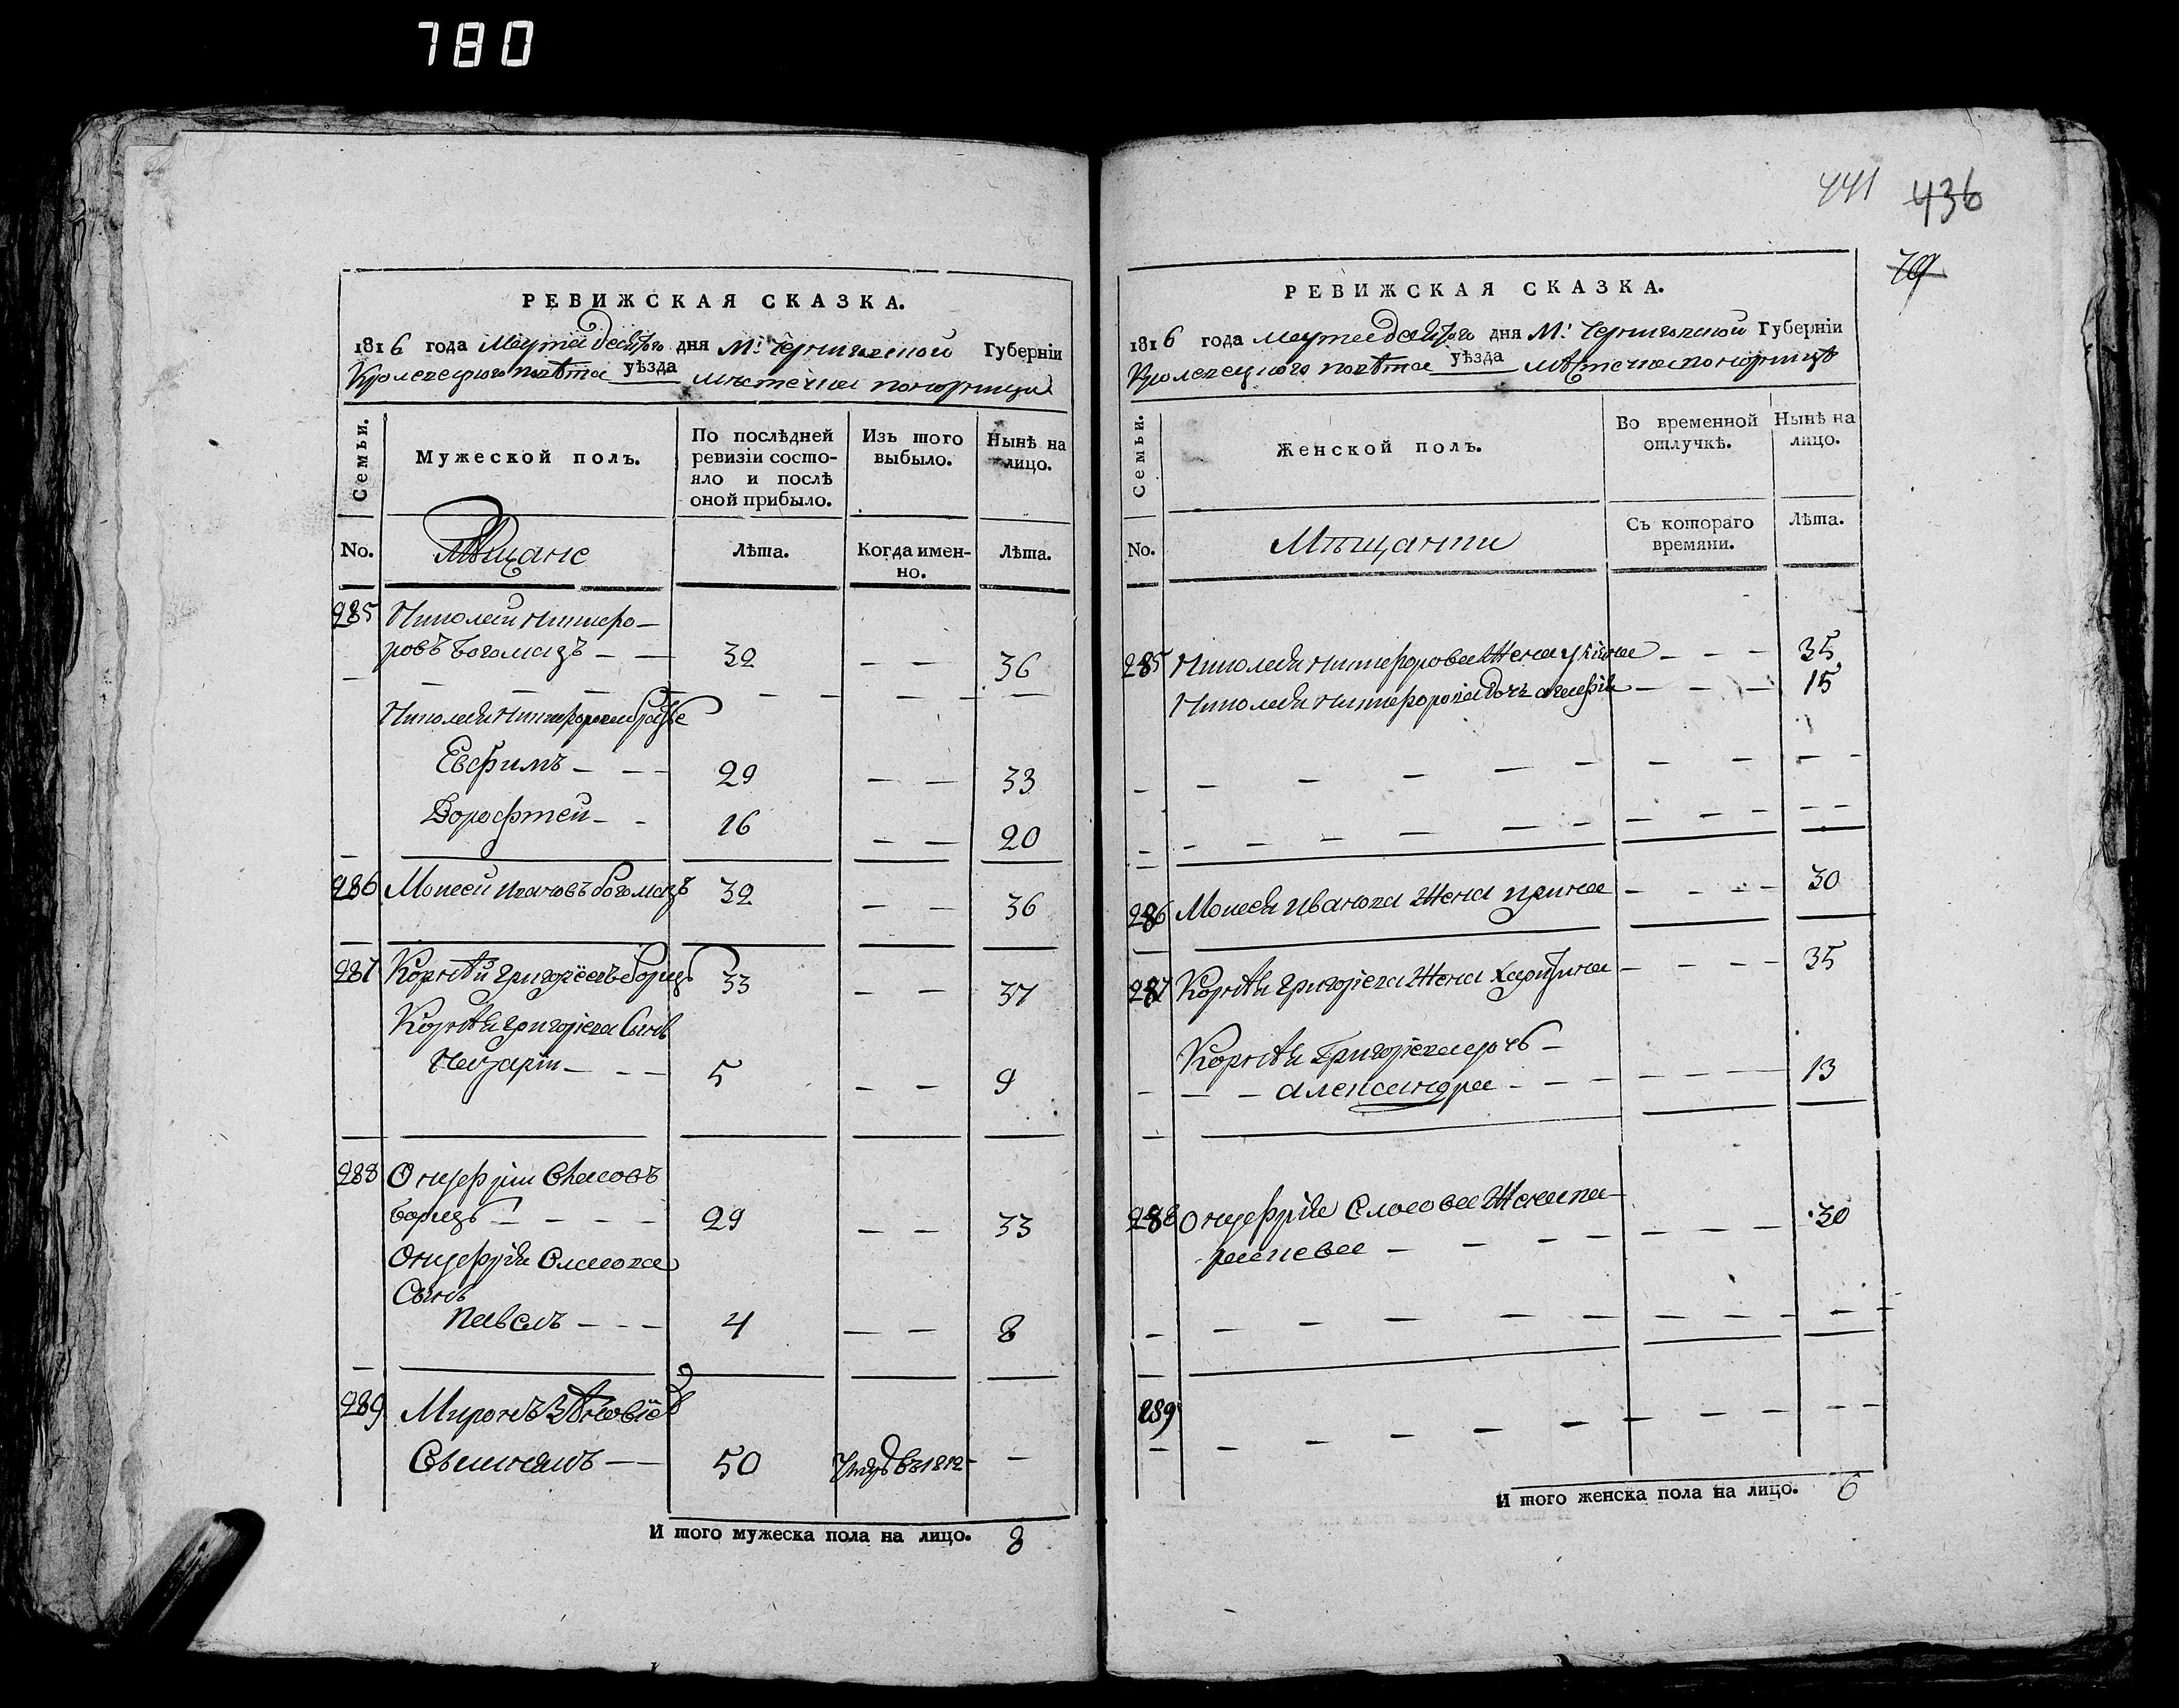 780
РЕВИЖСКАЯ СКАЗКА.
1816 года Марта десятого дня М: Черниговской Губерніи
Кролевецкого повѣта уѣзда мѣстечка понорницы
Семьи.
Мужеской полъ.
По послѣдней ревизіи состо-
яло и послѣ
оной прибыло.
Изъ того
выбыло.
Нынѣ на
лицо.
No.
Мѣщане
Лѣта.
Когда имен-
но.
Лѣта.
285 Николай Никифо-
ровъ Богомазъ — — 32 — — 36
Николая Никифорова братья
Евфимъ — — — 29 — — 33
Дорофтей — — 16 — — 20
286 Моисей Ивановъ Богомазъ 32 — — 36
287 Корнѣй Григорьевъ Борщъ 33 — — 37
Корнѣя Григорьева Сынъ
Назарій — — — 5 — — 9
288 Онуфрій Власовъ
Борщъ — — — — 29 — — 33
Онуфрія Власова
Сынъ
Павелъ — — — 4 — — 8
289 Миронъ Зѣновіевъ
50 въ 1812 —
И того мужеска пола на лицо. 8
441 436
РЕВИЖСКАЯ СКАЗКА.
1816 года Марта десятого дня М: Черниговской Губерніи
Кролевецкого повѣта уѣзда мѣстечка понорницы
Семьи.
Женской полъ.
Во временной
отлучкѣ.
Нынѣ на
лицо.
No.
Мѣщанки
Съ котораго
времяни.
Лѣта.
285 Николая Никифорова Жена — — — 35
Николая Никифорова дочь Агафія — — — 15
286 Моисея Иванова Жена Ирина — — — — 30
287 Корнѣя Григорьева Жена Харитина — — — — 35
Корнѣя Григорьева дочь —
— — Александра — — — — — — — 13
288 Онуфрія Власова Жена па-
раскева — — — — — — — 30
289
И того женска пола на лицо. 6